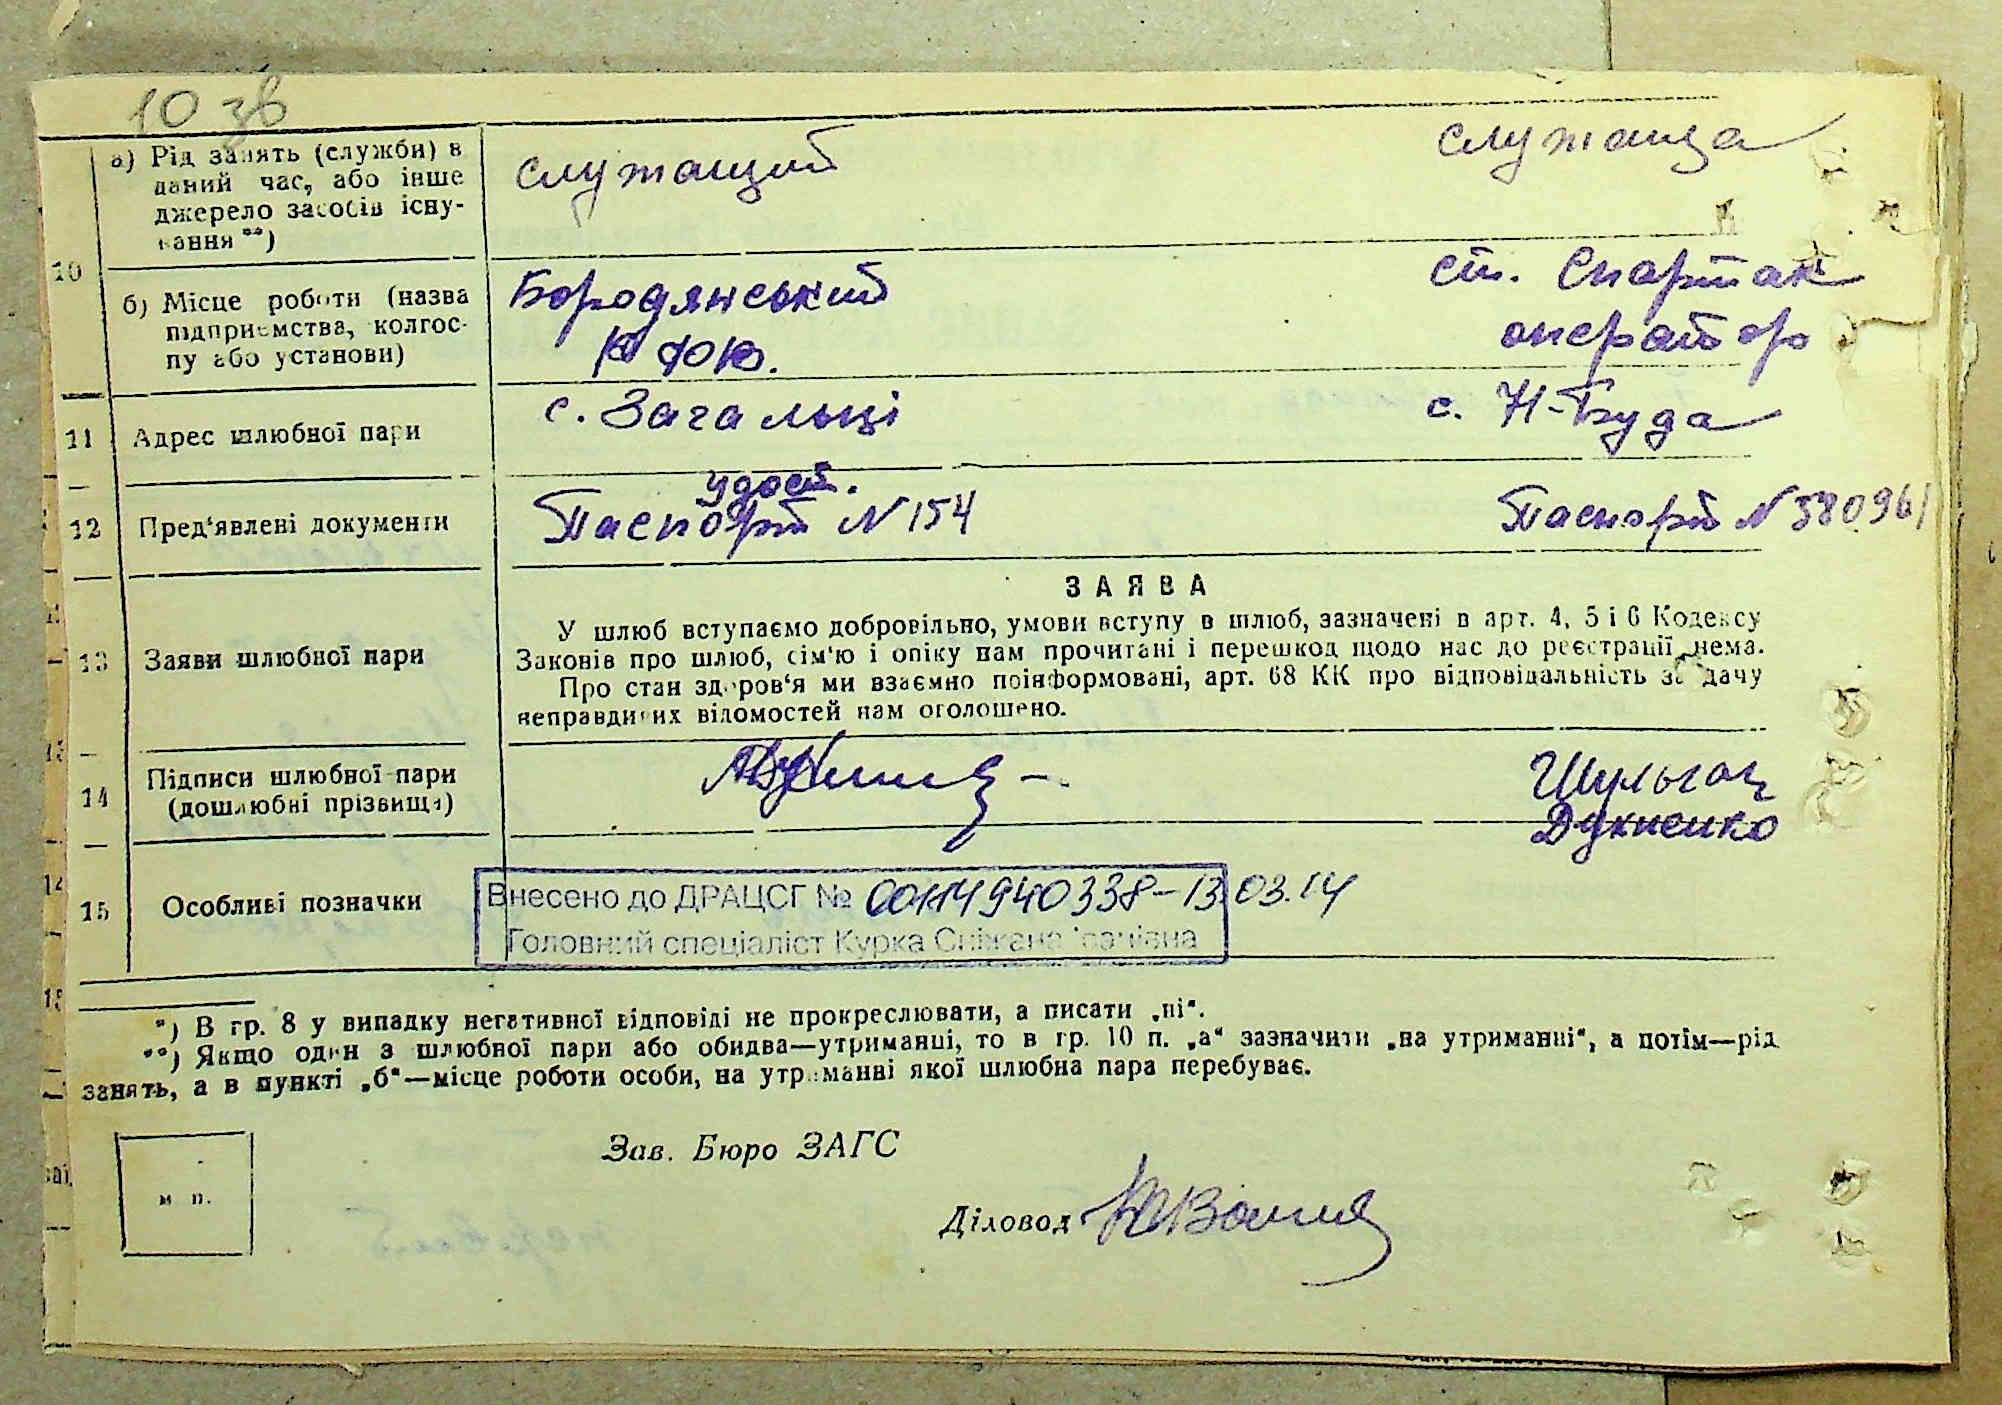 10 зв
а) Рід занять (служби) в
даний час, або інше
джерело засобів існу-
вання**)
служащий
служаща
10
б) Місце роботи (назва
підприємства, колгос-
пу або установи)
Бородянський
ст. Спартак
оператор
11
Адрес шлюбної пари
с. Загальці
с. Н-Буда
12
Пред'явлені документи
удост.
Паспорт N 154
Паспорт N 580961
13
Заяви шлюбної пари
ЗАЯВА
У шлюб вступаємо добровільно, умови вступу в шлюб, зазначені в арт. 4, 5 і 6 Кодексу
Законів про шлюб, сім'ю і опіку нам прочитані і перешкод щодо нас до реєстрації нема.
Про стан здоров'я ми взаємно поінформовані, арт. 68 КК про відповідальність за дачу
неправдивих відомостей нам оголошено.
14
Підписи шлюбної пари
(дошлюбні прізвища)
15
Особливі позначки
Внесено до ДРАЦСГ № 00114940338-13.03.14
Головний спеціаліст Курка Сніжана Іванівна
*) В гр. 8 у випадку негативної відповіді не прокреслювати, а писати „ні“.
**) Якщо один з шлюбної пари або обидва—утриманці, то в гр. 10 п. „а“ зазначити „на утриманні“, а потім—рід
занять, а в пункті „б“—місце роботи особи, на утриманні якої шлюбна пара перебуває.
м п.
Зав. Бюро ЗАГС
Діловод